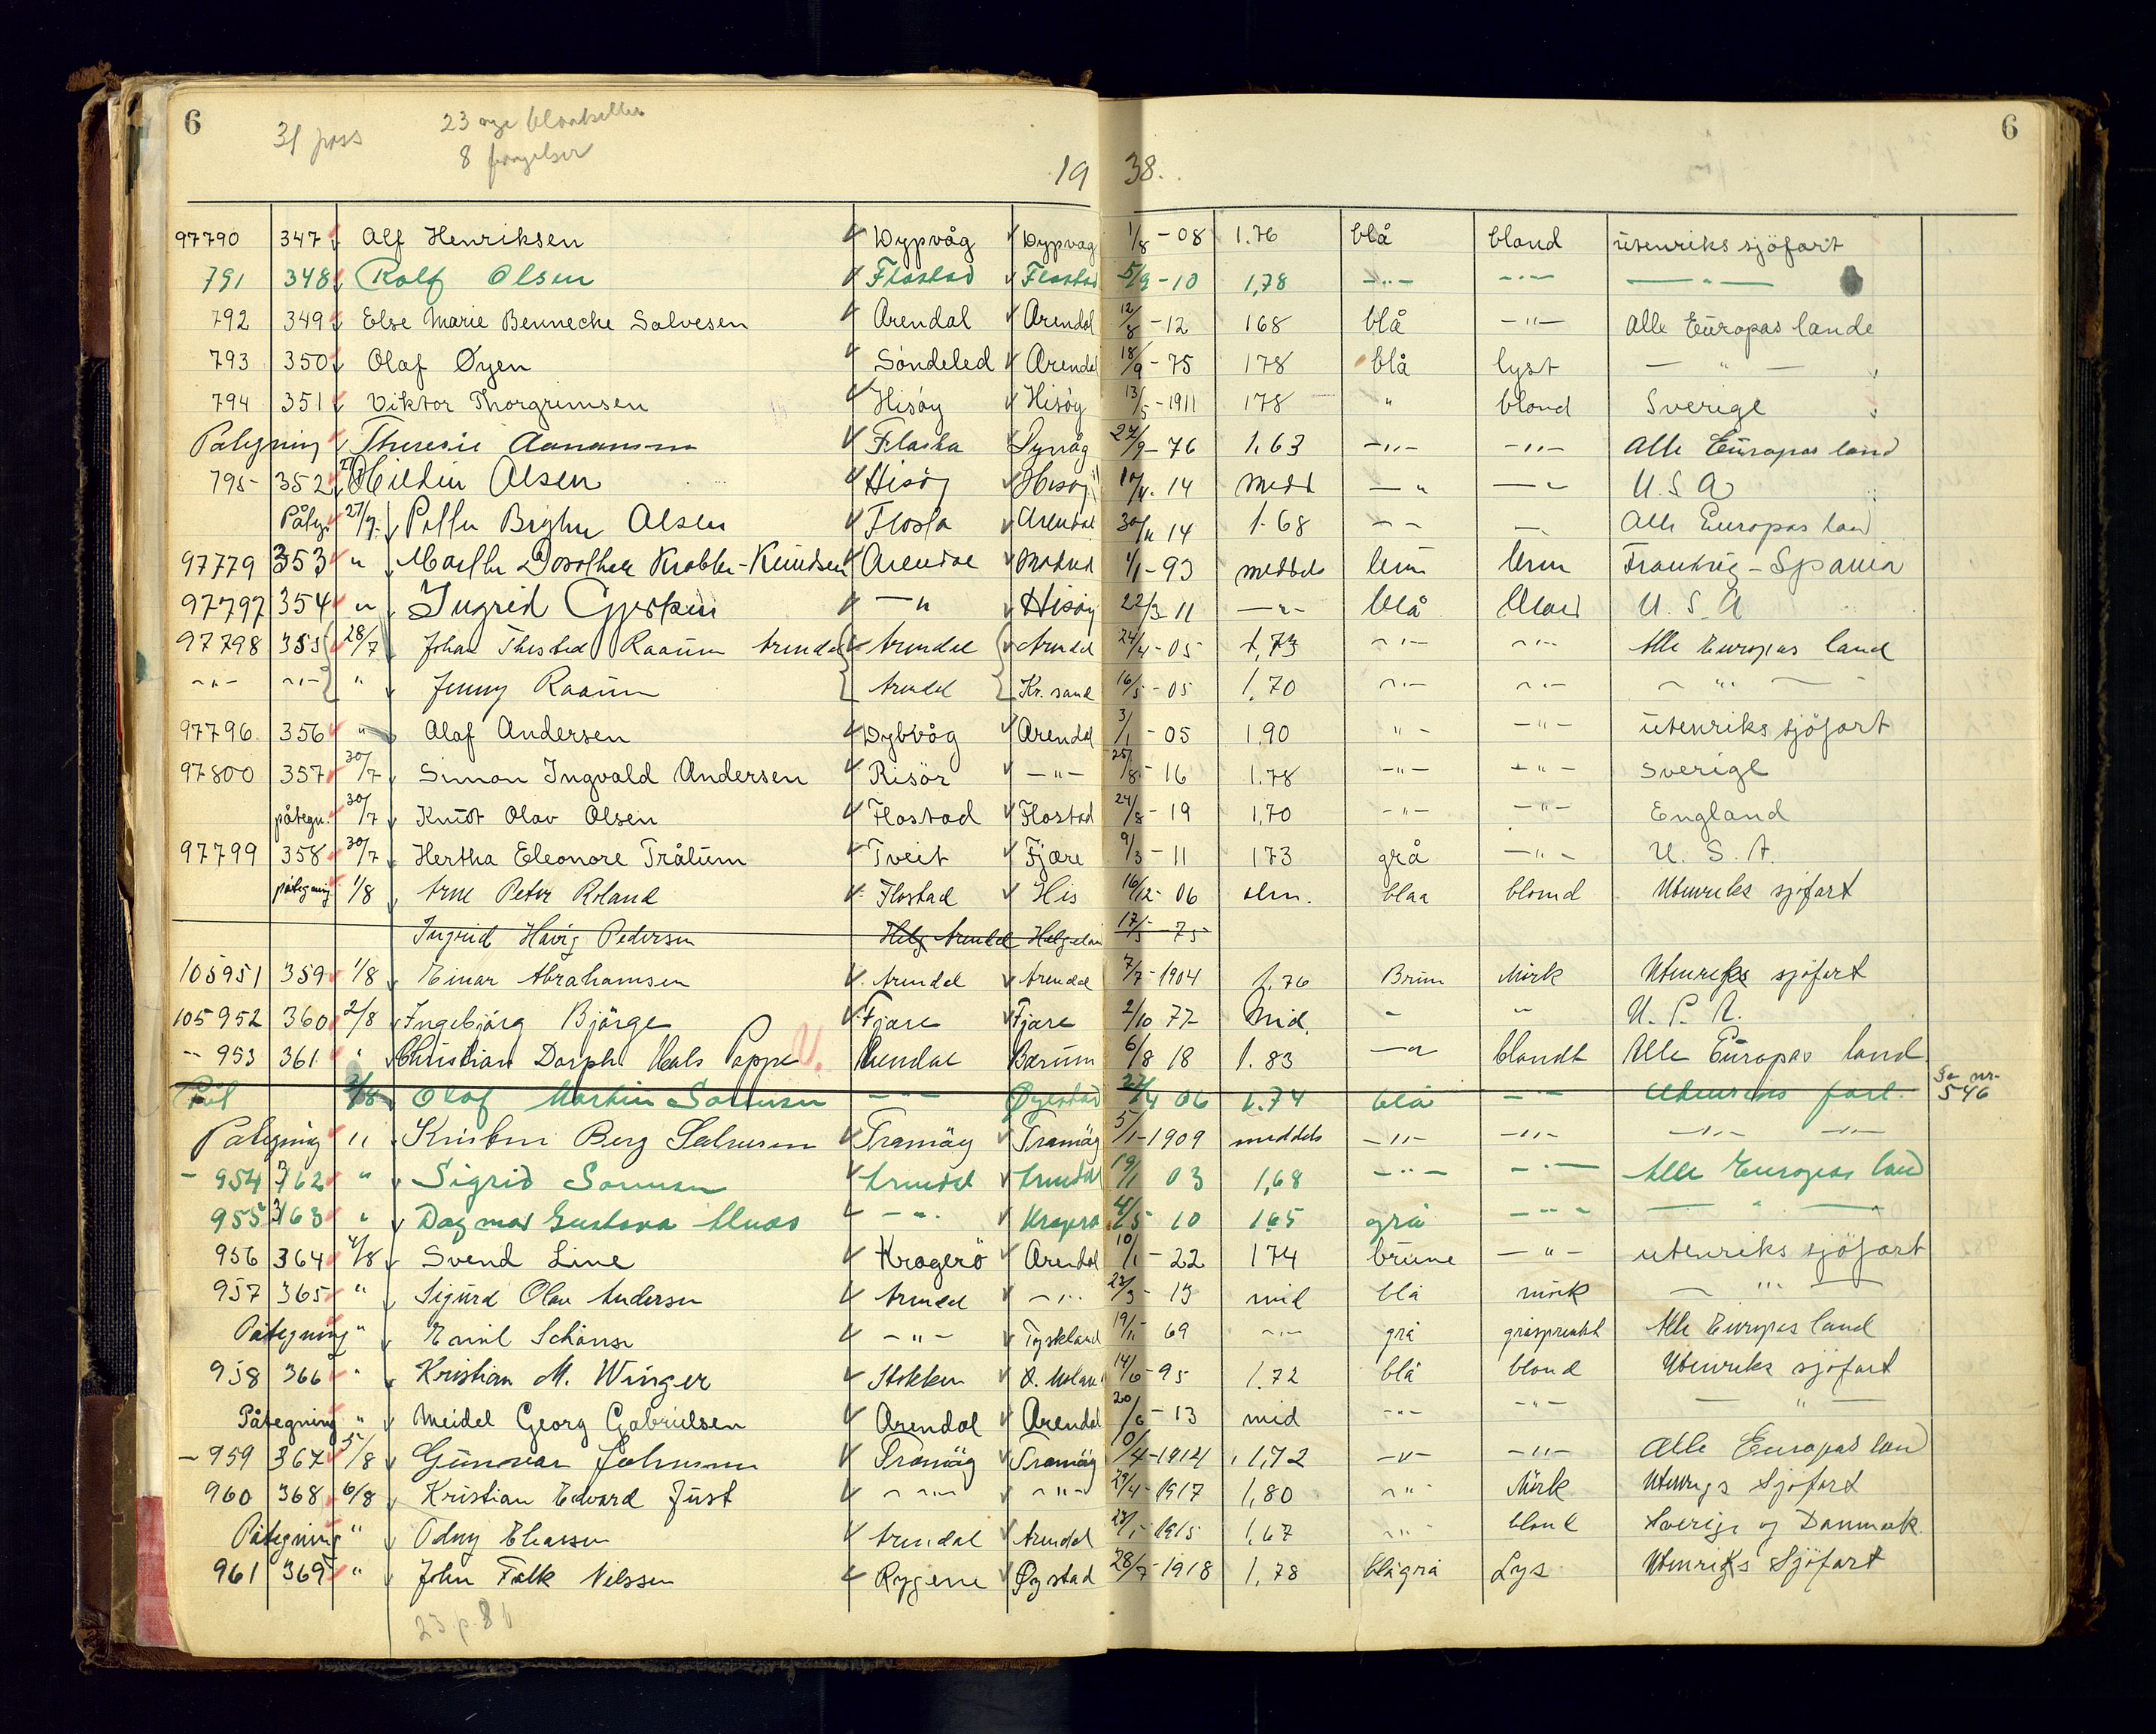 6 6
31 pass 23 nye blanketter
8
19 38.
97790 347 Alf Henriksen Dypvåg Dypvåg 1/8 - 08 1.76 blå blond utenriks sjöfart
791 348 Rolf Olsen Flostad Flostad 5/9 - 10 1,78 -"- -"- -"-
792 349 Else Marie Bennecke Salvesen Arendal Arendal 12/8 - 12 168 blå -"- Alle Europas lande
793 350 Olaf Øyen Söndeled Arendal 18/9 - 75 178 blå lyst - " -
794 351 Viktor Thorgrimsen Hisöy Hisöy 13/5 - 1911 178 " blond Sverige
Påtegning Theresie Aanonsen Flosta 27/9 - 76 1.63 -"- -"- Alle Europas land
795 352 Olsen Hisöy Hisöy 14 Medt - " - " U.S.A
Påtegn 27/7 Olsen Flosta Arendal 30/11 14 1.68 - - - Alle Europas land
97779 353 " Dorothea Krabbe-Knudsen Arendal 1/1 - 93 meddels brun brun Frankrig - Spania
97797 354 " Ingrid - " Hisöy 22/3 11 - " - blå blond U.S.A
97798 355 28/7 Johan Thested Raaum Arendal Arendal Arendal 24/4 - 05 1,73 -"- -"- Alle Europas land
-"- -"- " Jenny Raaum Arendal Kr. sand 16/5 - 05 1.70 -"- -"- - " -
97796 356 " Olaf Andersen Dybvåg Arendal 3/1 - 05 1.90 " - -"- utenriks sjöfart
97800 357 30/7 Simon Ingvald Andersen Risör -"- 25/8 - 16 1.78 -"- -"- Sverige
påtegn. 30/7 Knut Olav Olsen Flostad Flostad 24/8 - 19 1,70 -"- -"- England
97799 358 30/7 Hertha Eleonore Trålum Tveit Fjære 9/3 - 11 173 grå -"- U.S.A.
påtegning 1/8 Arne Peter Roland Flostad His 16/12 - 06 alm. blaa blond Utenriks sjöfart
Ingrid Havig Pedersen Helg Arendal Helgeland 17/5 75
105951 359 1/8 Einar Abrahamsen Arendal Arendal 7/7 - 1904 1.76 Brun Mörk Utenriks sjöfart
105952 360 2/8 Ingebjörg Björge Fjære Fjære 2/10 77 Mid. - " U.S.A.
" 953 361 " Christian Dorph Pappe Arendal Bærum 6/8 18 1.83 - " blondt Alle Europas land
Påt 3/8 Olaf Martin Sørensen - " - Öyestad 27/4 06 1.74 blå - " - Utenriks fart. Se nr. 546
Påtegning " Kristen Berg Salvesen Tromöy Tromöy 5/1 - 1909 meddels -"- -"- -"- -"-
- 954 362 " Sigrid Sørensen Arendal Arendal 19/1 03 1,68 -"- -"- Alle Europas land
955 363 " Dagmar Gustava - " - Kragerø 4/5 10 165 grå -"- - " -
956 364 4/8 Svend Line Kragerö Arendal 10/1 - 22 174 brune -"- utenriks sjöfart
957 365 " Sigurd Olav Andersen Arendal -"- 23/3 - 13 mid blå mörk - " -
Påtegning " Emil Schönse -"- Tyskland 19/11 69 -"- grå gråsprenkt Alle Europas land
958 366 " Kristian M. Winger Stokken Ö. Moland 14/6 - 95 1.72 blå blond Utenriks sjöfart
Påtegning " Meidel Georg Gabrielsen Arendal Arendal 20/6 - 13 mid -"- -"- - " -
- 959 367 5/8 Gunvar Johnsen Tromöy Tromöy 10/4 - 1914 1,72 -"- -"- Alle Europas land
960 368 6/8 Kristian Edvard Just -"- -"- 29/4 - 1917 1,80 -"- Mörk Utenrigs Sjöfart
Påtegning " Odny Eliassen Arendal Arendal 1915 1,67 -"- blond Sverige og Danmark
961 369 " John Falk Nilssen Rygene Öystad 28/7 - 1918 1,78 blågrå Lys Utenriks Sjöfart
23 p. 8